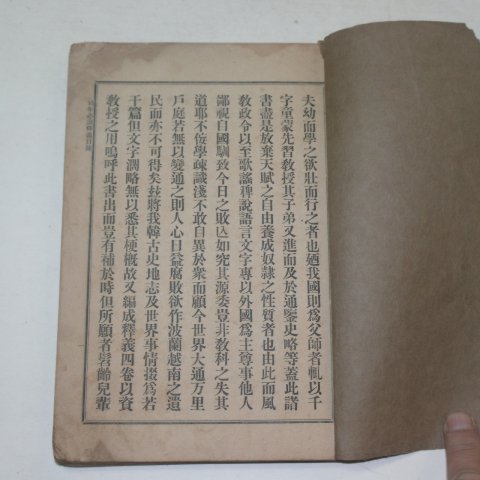 夫幼而學之欲壯而行之者也廼我國則爲父師者輒以千
字童蒙先習敎授其子弟又進而及於通鑑史略等蓋此諸
書盡是放棄天賦之自由養成奴隷之性質者也由此而風
敎政令以至歌謠稗說語言文字專以外國爲主尊事他人
鄙視自國馴致今日之敗亡如究其源委豈非敎科之失其
道耶不侫學疎識淺不敢自異於衆而顧今世界大通万里
戶庭若無以變通之則人心日益腐敗欲作波蘭越南之遺
民而亦不可得矣玆將我韓古史地志及世界事情掇爲若
干篇但文字濶略無以悉其梗槪故又編成釋義四卷以資
敎授之用嗚呼此書出而豈有補於時但所願者髫齡兒輩